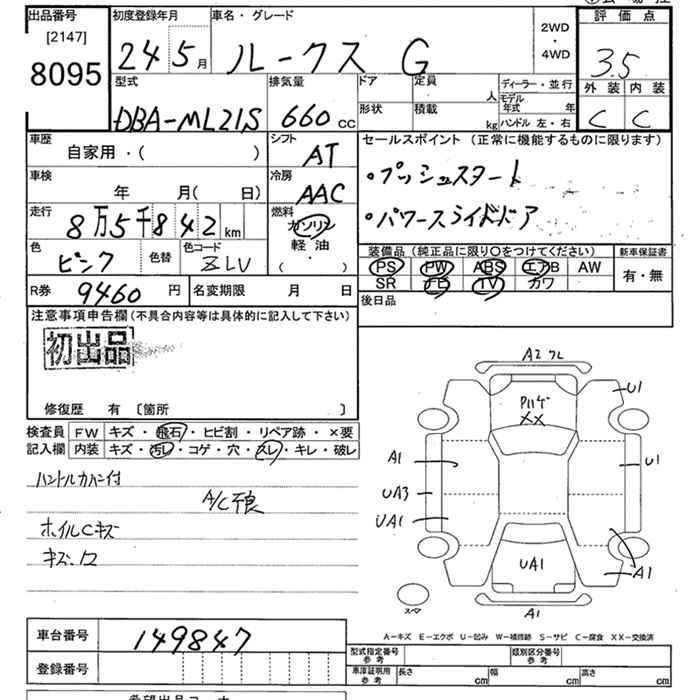 出品番号 初度登録年月 車名・グレード 評価点
[2147]
8095
24 5月 ルークス G 2WD・4WD 3.5
外装 内装
C C
型式 排気量 ドア 定員 人 ディーラー・並行
DBA-ML21S 660cc 形状 積載 kg モデル年式 年
ハンドル 左・右
車歴 シフト セールスポイント (正常に機能するものに限ります)
自家用・( ) AT ・プッシュスタート
車検 冷房
年 月( 日) AAC ・パワースライドドア
走行 燃料
8万5千842km ガソリン
軽油
( )
色 色替 色コード 装備品(純正品に限り○をつけてください) 新車保証書
ピンク ZLV PS PW ABS エアB AW 有・無
SR ナビ TV カワ
R券 9460円 名変期限 月 日 後日品
注意事項申告欄(不具合内容等は具体的に記入して下さい)
初出品
修復歴 有 〔箇所 〕
検査員 FW キズ・飛石・ヒビ割・リペア跡・×要
記入欄 内装 キズ・汚レ・コゲ・穴・スレ・キレ・破レ
ハンドルカバー付
A/C不良
ホイルCキズ
キズ、凹
A2 ワレ
U1
XX
A1
U1
UA3
UA1
UA1
A1
スペア
A1
A-キズ E-エクボ U-凹み W-補修跡 S-サビ C-腐食 XX-交換済
車台番号 149847
型式指定番号 参考 類別区分番号 参考
登録番号
車庫証明用 参考 長さ cm 幅 cm 高さ cm